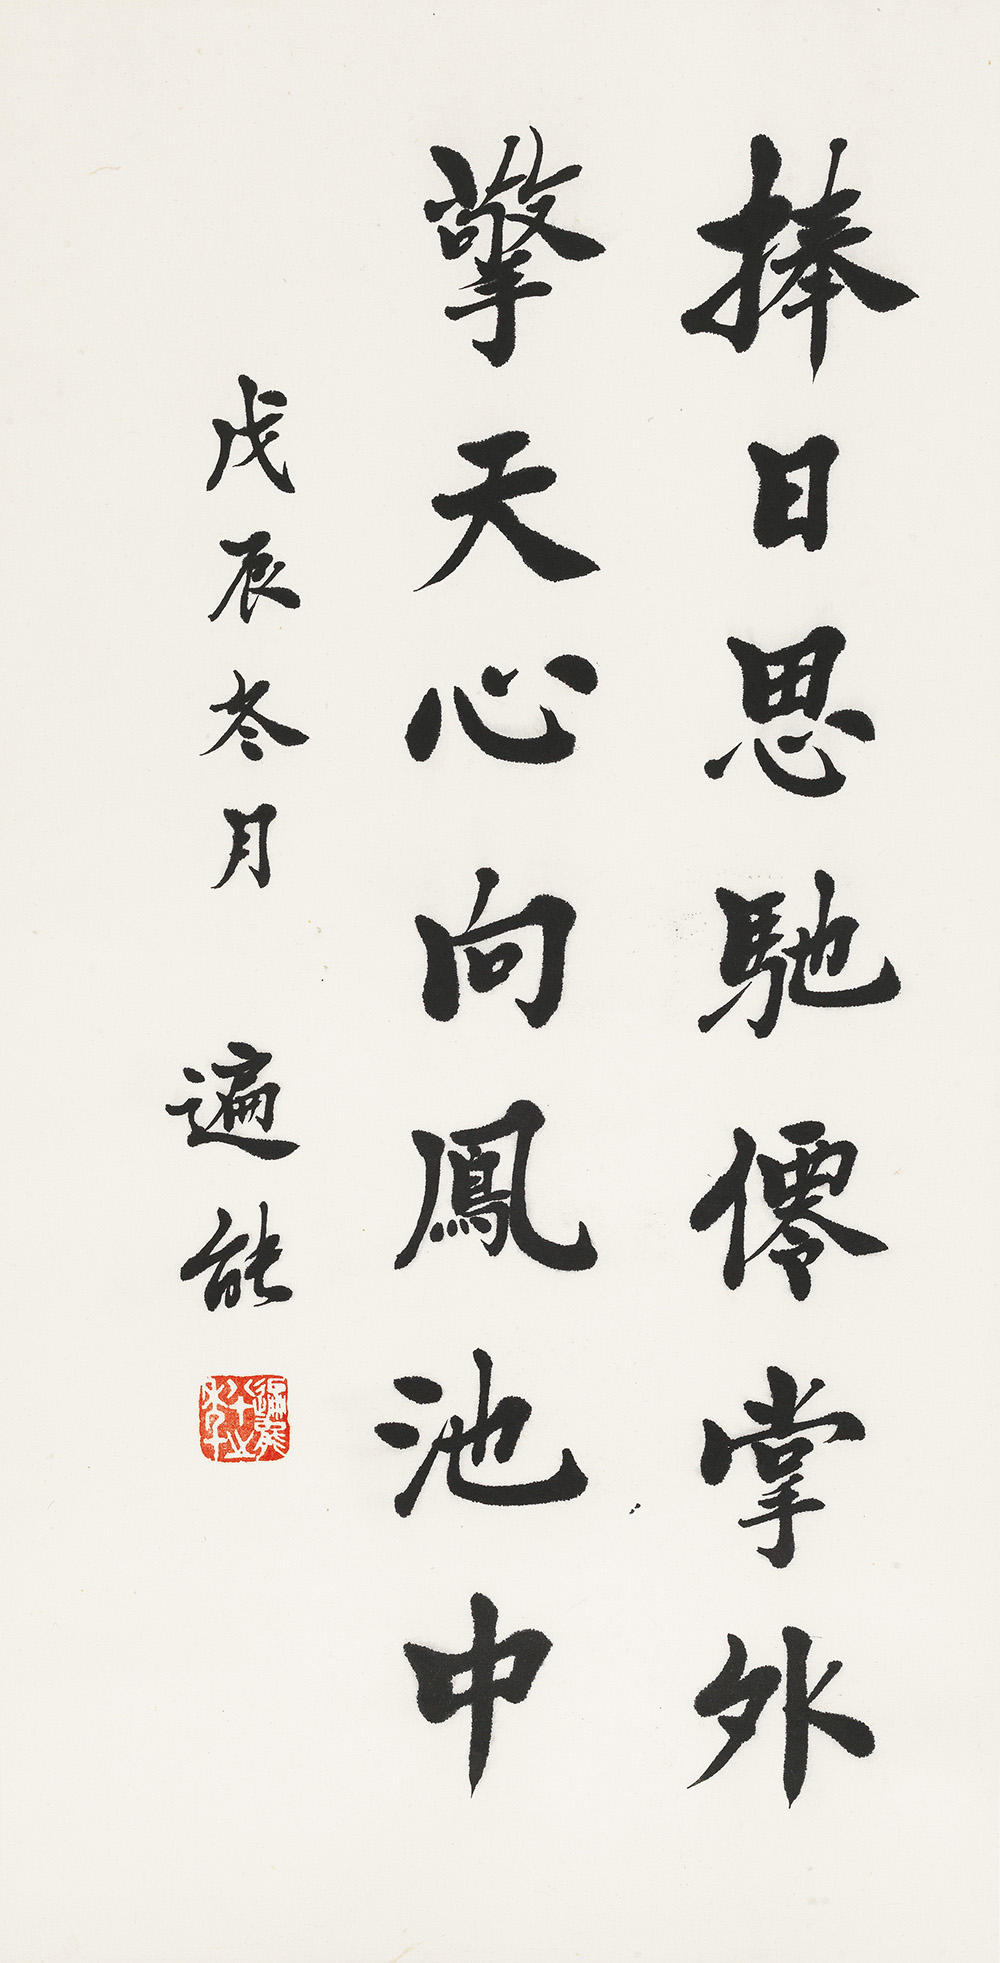 捧日思馳僊掌外
擎天心向鳳池中
戊辰冬月 遍能